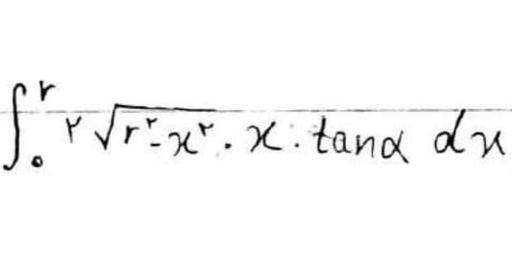 ∫₀^r ۲ √(r^۲ - x^۲) · x · tanα dx